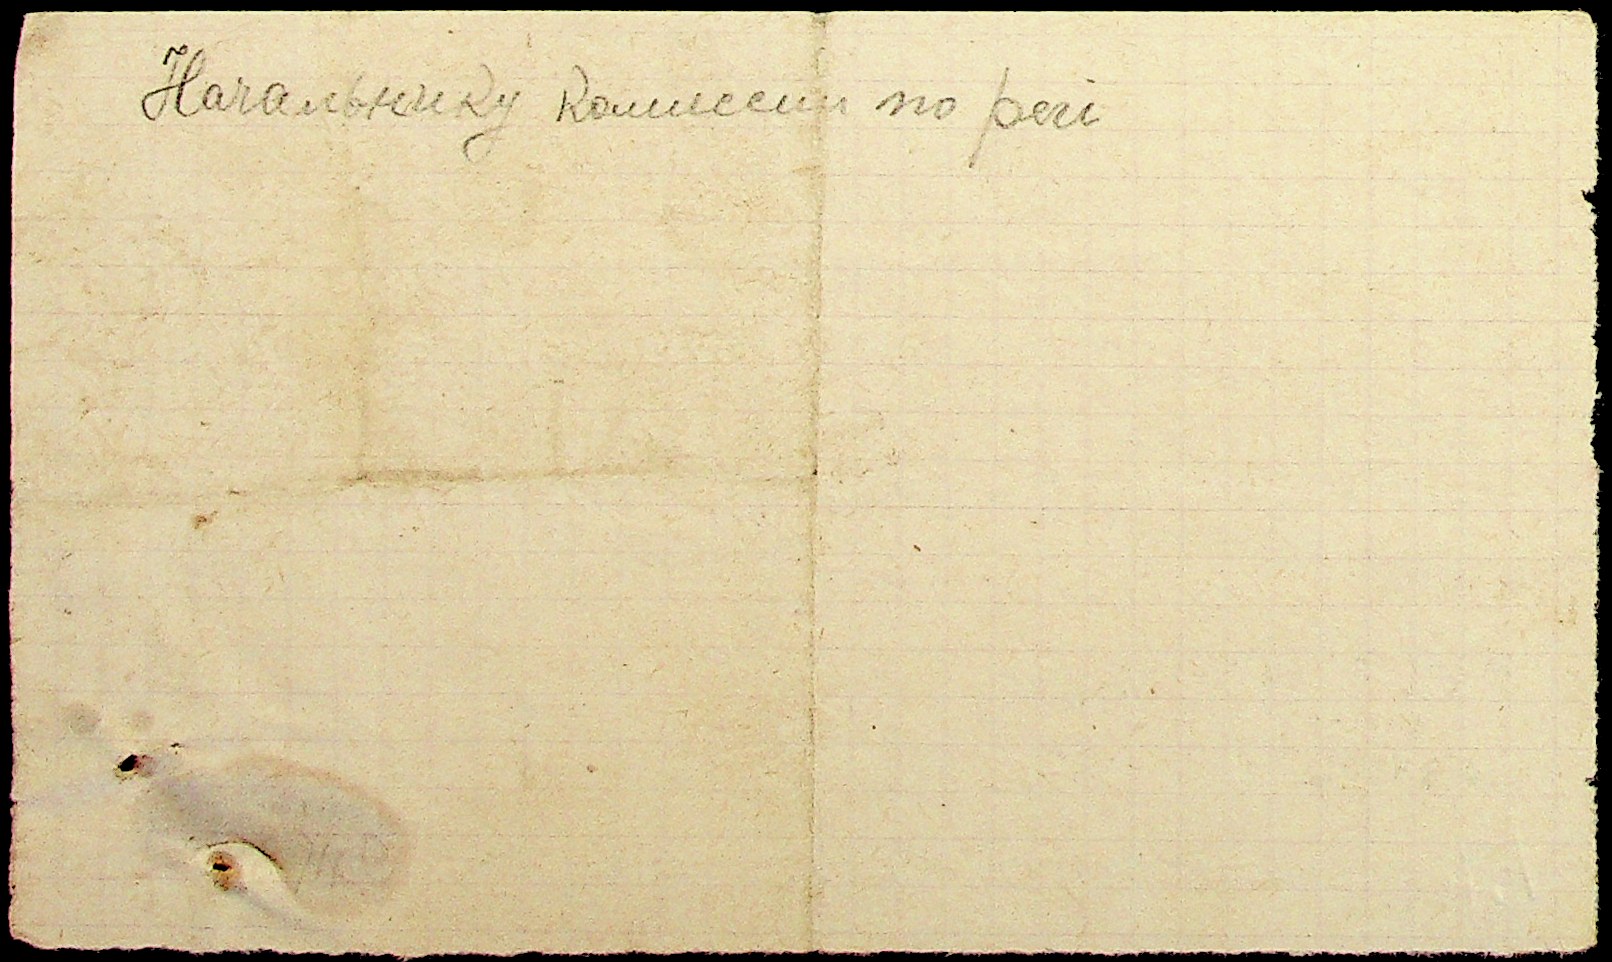 Начальнику комиссии по реги